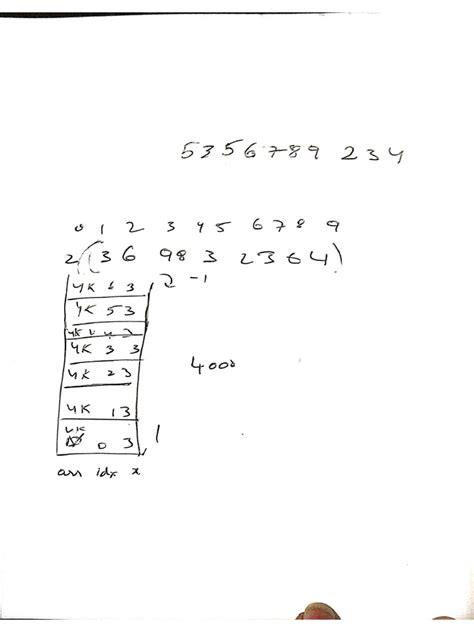 5356789 234
0 1 2 3 4 5 6 7 8 9
2 ( 3 6 9 8 3 2 3 6 4 )
4K 6 3 , 2 -1
4K 5 3
4K 4 3
4K 3 3
4K 2 3 4000
4K 1 3
4K 0 3 , 1
arr idx x